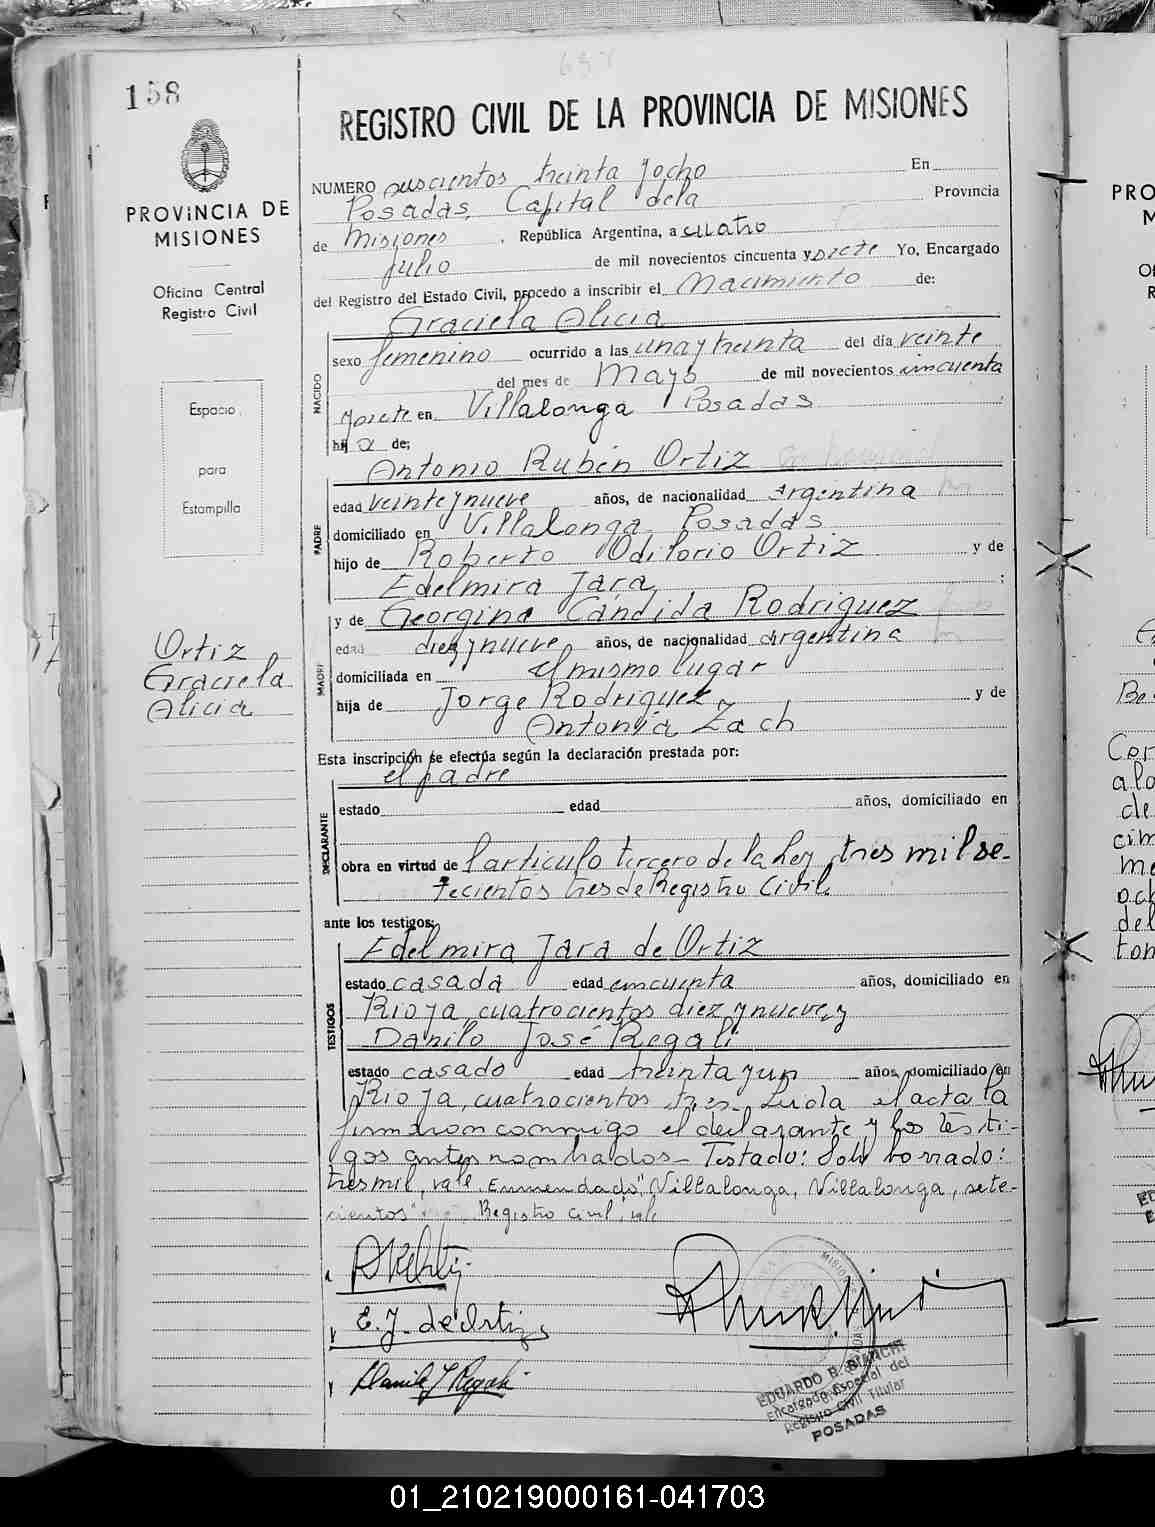 158
REGISTRO CIVIL DE LA PROVINCIA DE MISIONES
PROVINCIA DE
MISIONES
Oficina Central
Registro Civil
Espacio
para
Estampilla
Ortiz
Graciela
Alicia
NUMERO treinta y ocho En
Posadas, Capital de la Provincia
de Misiones, República Argentina, a cuatro
Julio de mil novecientos cincuenta y siete Yo, Encargado
del Registro del Estado Civil, procedo a inscribir el Nacimiento de:
Graciela Alicia
NACIDO
sexo femenino ocurrido a las una y treinta del día veinte
del mes de Mayo de mil novecientos cincuenta
y siete en Villalonga Posadas
hija de;
Antonio Rubén Ortiz
PADRE
edad veinte y nueve años, de nacionalidad argentina
domiciliado en Villalonga Posadas
hijo de Roberto Odilorio Ortiz y de
Edelmira Jara
y de Georgina Cándida Rodriguez
MADRE
edad diez y nueve años, de nacionalidad argentina
domiciliada en el mismo lugar
hija de Jorge Rodriguez y de
Antonia Zach
Esta inscripción se efectúa según la declaración prestada por:
el padre
DECLARANTE
estado edad años, domiciliado en
obra en virtud de l articulo tercero de la ley tres mil se-
tecientos tres de Registro Civil
ante los testigos:
Edelmira Jara de Ortiz
TESTIGOS
estado casada edad cincuenta años, domiciliado en
Rioja, cuatrocientos diez y nueve, y
Danilo José Regali
estado casado edad treinta y un años, domiciliado en
Rioja, cuatrocientos tres Leída el acta la
firmaron conmigo el declarante y los testi-
gos antes nombrados - Testado: borrado:
tres mil, vale, Enmendado", Villalonga, Villalonga, sete-
cientos" Registro Civil, vale
E. J. de Ortiz
Danilo J Regali
EDUARDO R. BIANCHI
Encargado Especial del
Registro Civil Titular
POSADAS
01_210219000161-041703